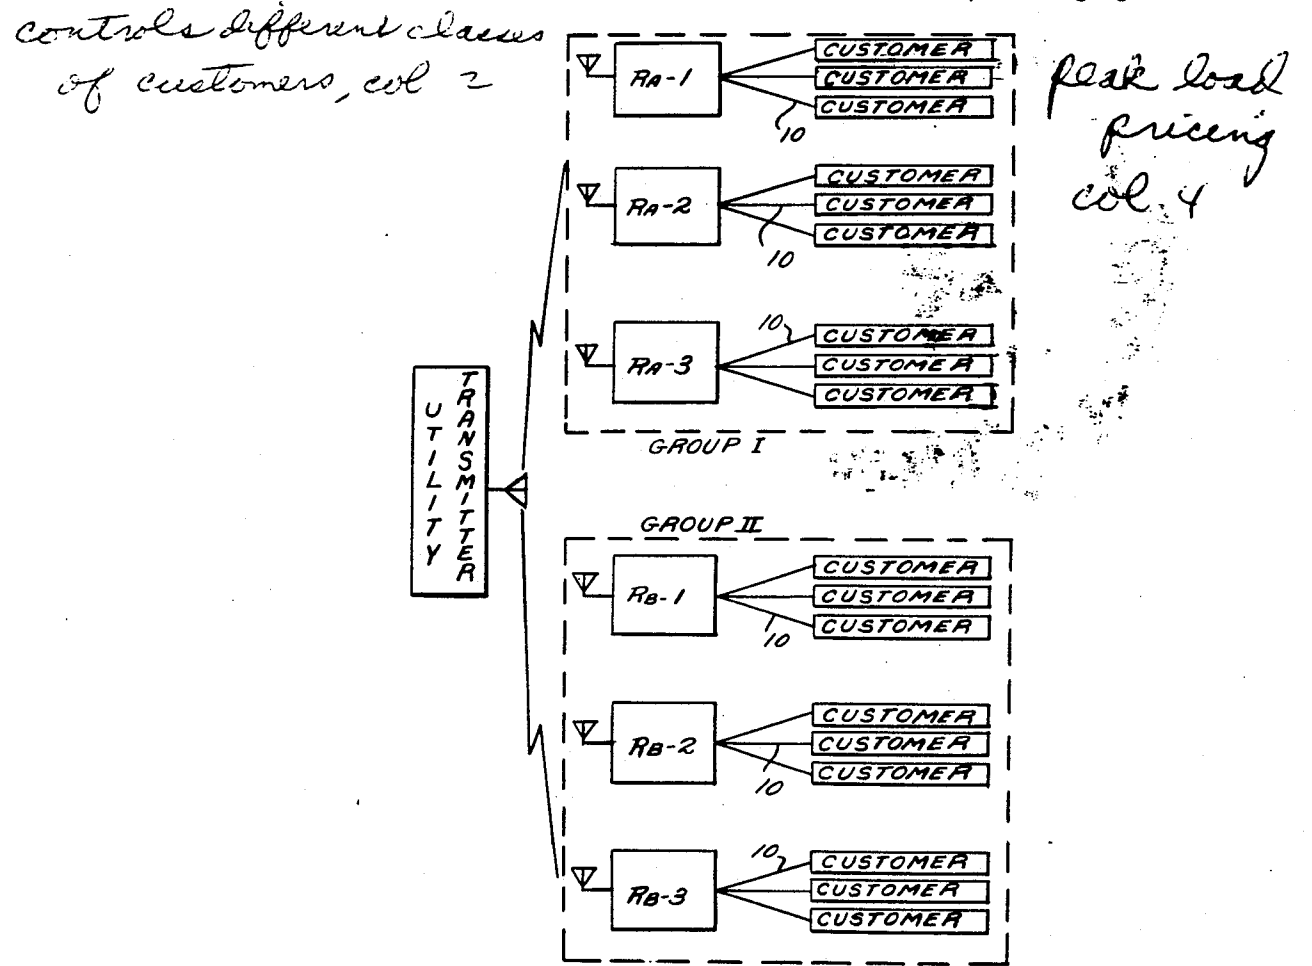 controls different classes
of customers, col 2
peak load
pricing
col 4
RA-1
CUSTOMER
CUSTOMER
CUSTOMER
10
RA-2
CUSTOMER
CUSTOMER
CUSTOMER
10
RA-3
10
CUSTOMER
CUSTOMER
CUSTOMER
GROUP I
UTILITY
TRANSMITTER
GROUP II
RB-1
CUSTOMER
CUSTOMER
CUSTOMER
10
RB-2
CUSTOMER
CUSTOMER
CUSTOMER
10
RB-3
10
CUSTOMER
CUSTOMER
CUSTOMER